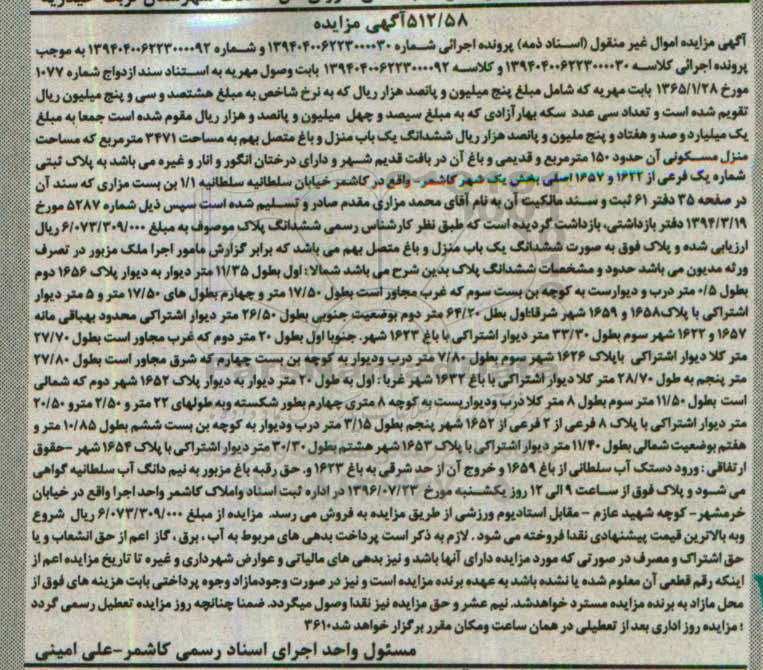 ۵۱۲/۵۸آگهی مزایده
آگهی مزایده اموال غیر منقول (اسناد ذمه) پرونده اجرائی شماره ۱۳۹۴۰۴۰۰۶۲۲۳۰۰۰۰۳۰ و شماره ۱۳۹۴۰۴۰۰۶۲۲۳۰۰۰۰۹۲ به موجب
پرونده اجرائی کلاسه ۱۳۹۴۰۴۰۰۶۲۲۳۰۰۰۰۳۰ و کلاسه ۱۳۹۴۰۴۰۰۶۲۲۳۰۰۰۰۹۲ بابت وصول مهریه به استناد سند ازدواج شماره ۱۰۷۷
مورخ ۱۳۶۵/۱/۲۸ بابت مهریه که شامل مبلغ پنج میلیون و پانصد هزار ریال که به نرخ شاخص به مبلغ هشتصد و سی و پنج میلیون ریال
تقویم شده است و تعداد سی عدد سکه بهار آزادی که به مبلغ سیصد و چهل میلیون و پانصد و هزار ریال مقوم شده است جمعا به مبلغ
یک میلیارد و صد و هفتاد و پنج ملیون و پانصد هزار ریال ششدانگ یک باب منزل و باغ متصل بهم به مساحت ۳۴۷۱ مترمربع که مساحت
منزل مسکونی آن حدود ۱۵۰ مترمربع و قدیمی و باغ آن در بافت قدیم شهر و دارای درختان انگور و انار و غیره می باشد به پلاک ثبتی
شماره یک فرعی از ۱۶۲۲ و ۱۶۵۷ اصلی بخش یک شهر کاشمر- واقع در کاشمر خیابان سلطانیه سلطانیه ۱/۱ بن بست مزاری که سند آن
در صفحه ۳۵ دفتر ۶۱ ثبت و سند مالکیت آن به نام آقای محمد مزاری مقدم صادر و تسلیم شده است سپس ذیل شماره ۵۲۸۷ مورخ
۱۳۹۴/۳/۱۹ دفتر بازداشتی، بازداشت گردیده است که طبق نظر کارشناس رسمی ششدانگ پلاک موصوف به مبلغ ۶/۰۷۳/۳۰۹/۰۰۰ ریال
ارزیابی شده و پلاک فوق به صورت ششدانگ یک باب منزل و باغ متصل بهم می باشد که برابر گزارش مامور اجرا ملک مزبور در تصرف
ورثه مدیون می باشد حدود و مشخصات ششدانگ پلاک بدین شرح می باشد شمالا : اول بطول ۱۱/۳۵ متر دیوار به دیوار پلاک ۱۶۵۶ دوم
بطول ۰/۵ متر درب و دیواریست به کوچه بن بست سوم که غرب مجاور است بطول ۱۷/۵۰ متر و چهارم بطول های ۱۷/۵۰ متر و ۵ متر دیوار
اشتراکی با پلاک۱۶۵۸ و ۱۶۵۹ شهر شرقا:اول بطل ۶۴/۲۰ متر دوم بوضعیت جنوبی بطول ۲۶/۵۰ متر دیوار اشتراکی محدود بهباقی مانه
۱۶۵۷ و ۱۶۲۲ شهر سوم بطول ۳۳/۳۰ متر دیوار اشتراکی با باغ ۱۶۲۳ شهر. جنوبا اول بطول ۲۰ متر دوم که غرب مجاور است بطول ۲۷/۷۰
متر کلا دیوار اشتراکی باپلاک ۱۶۲۶ شهر سوم بطول ۷/۸۰ متر درب ودیوار به کوچه بن بست چهارم که شرق مجاور است بطول ۲۷/۸۰
متر پنجم به طول ۲۸/۷۰ متر کلا دیوار اشتراکی با باغ ۱۶۳۲ شهر غربا : اول به طول ۲۰ متر دیوار به دیوار پلاک ۱۶۵۲ شهر دوم که شمالی
است بطول ۱۱/۵۰ متر سوم بطول ۸ متر کلا درب ودیواریست به کوچه ۸ متری چهارم بطور شکسته وبه طولهای ۲۲ متر و ۲/۵۰ مترو ۲۰/۵۰
متر دیوار اشتراکی با پلاک ۸ فرعی از ۲ فرعی از ۱۶۵۲ شهر پنجم بطول ۳/۱۵ متر درب ودیوار به کوچه بن بست ششم بطول ۱۰/۸۵ متر و
هفتم بوضعیت شمالی بطول ۱۱/۴۰ متر دیوار اشتراکی با پلاک ۱۶۵۳ شهر هشتم بطول ۳۰/۳۰ متر دیوار اشتراکی با پلاک ۱۶۵۴ شهر -حقوق
ارتفاقی : ورود دستک آب سلطانی از باغ ۱۶۵۹ و خروج آن از حد شرقی به باغ ۱۶۲۳ و. حق رقبه باغ مزبور به نیم دانگ آب سلطانیه گواهی
می شود و پلاک فوق از ساعت ۹ الی ۱۲ روز یکشنبه مورخ ۱۳۹۶/۰۷/۲۳ در اداره ثبت اسناد واملاک کاشمر واحد اجرا واقع در خیابان
خرمشهر- کوچه شهید عازم – مقابل استادیوم ورزشی از طریق مزایده به فروش می رسد. مزایده از مبلغ ۶/۰۷۳/۳۰۹/۰۰۰ ریال شروع
وبه بالاترین قیمت پیشنهادی نقدا فروخته می شود . لازم به ذکر است پرداخت بدهی های مربوط به آب ، برق ، گاز اعم از حق انشعاب و یا
حق اشتراک و مصرف در صورتی که مورد مزایده دارای آنها باشد و نیز بدهی های مالیاتی و عوارض شهرداری و غیره تا تاریخ مزایده اعم از
اینکه رقم قطعی آن معلوم شده یا نشده باشد به عهده برنده مزایده است و نیز در صورت وجودمازاد وجوه پرداختی بابت هزینه های فوق از
محل مازاد به برنده مزایده مسترد خواهدشد. نیم عشر و حق مزایده نیز نقدا وصول میگردد. ضمنا چنانچه روز مزایده تعطیل رسمی گردد
؛ مزایده روز اداری بعد از تعطیلی در همان ساعت ومکان مقرر برگزار خواهد شد۳۶۱۰
مسئول واحد اجرای اسناد رسمی کاشمر-علی امینی